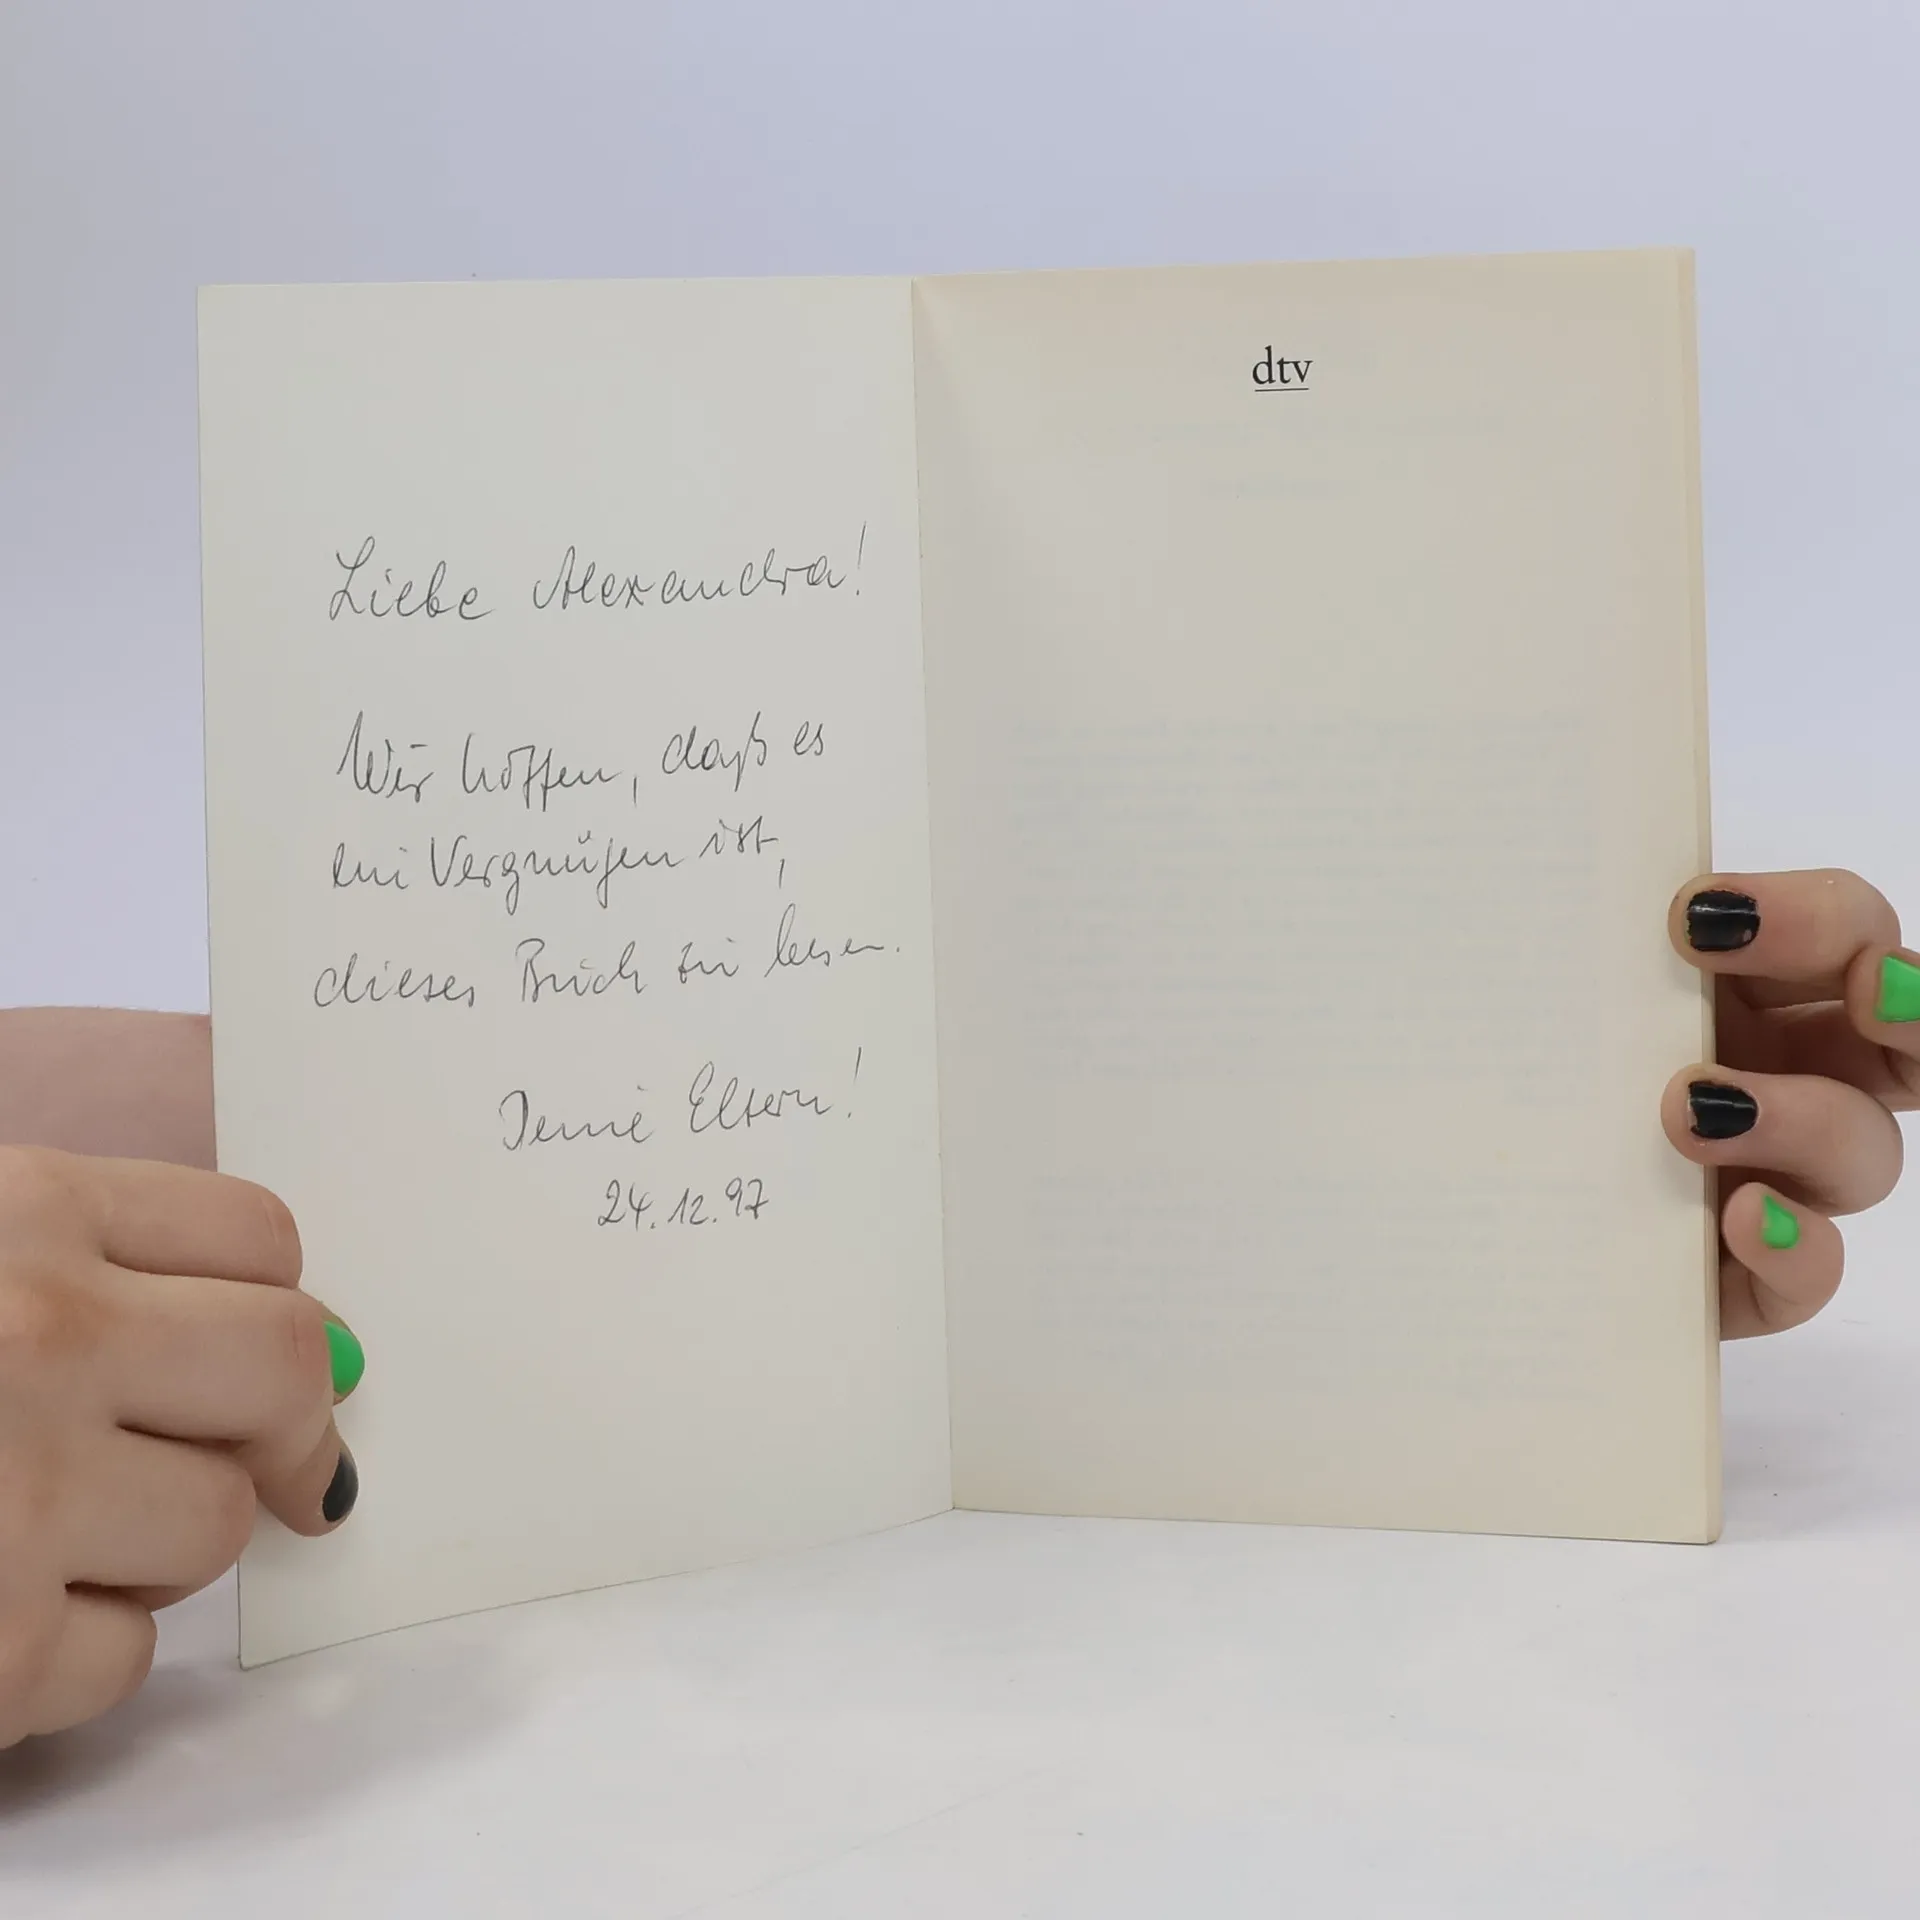 Liebe Alexandra!
Wir hoffen, daß es
ein Vergnügen ist,
dieses Buch zu lesen.
Deine Eltern!
24.12.97
dtv